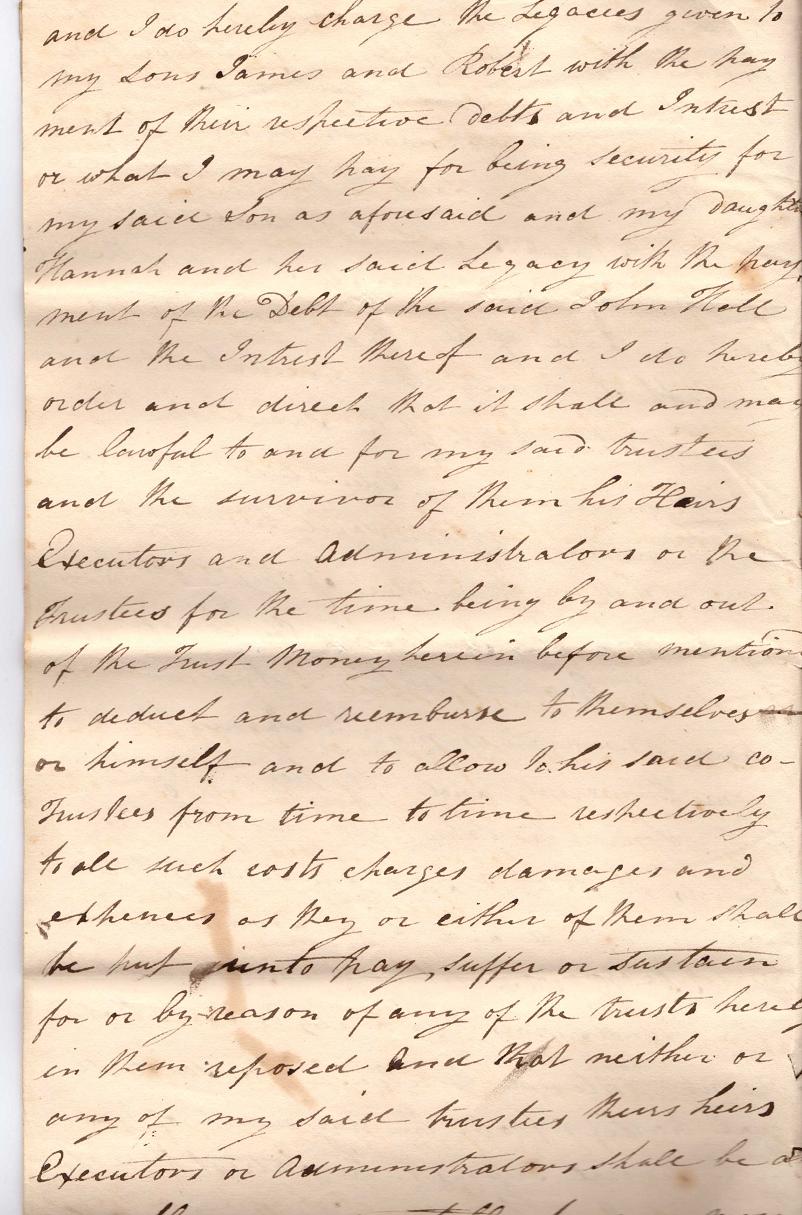 and I do hereby charge the Legacies given to
my Sons James and Robert with the pay
ment of their respective Debts and Intrest
or what I may pay for being security for
my said Son as aforesaid and my Daught
Hannah and her said Legacy with the pay
ment of the Debt of the said John Hall
and the Intrest thereof and I do hereby
order and direct that it shall and may
be lawful to and for my said trustees
and the survivor of them his Heirs
Executors and Administrators or the
Trustees for the time being by and out
of the Trust Money herein before mention
to deduct and reemburse to themselves
or himself and to allow to his said co-
Trustees from time to time respectively
to all such costs charges damages and
expences as they or either of them shall
be put unto pay, suffer or sustain
for or by reason of any of the trusts here
in them reposed And that neither or
any of my said trustees theirs heirs
Executors or Administrators shall be a